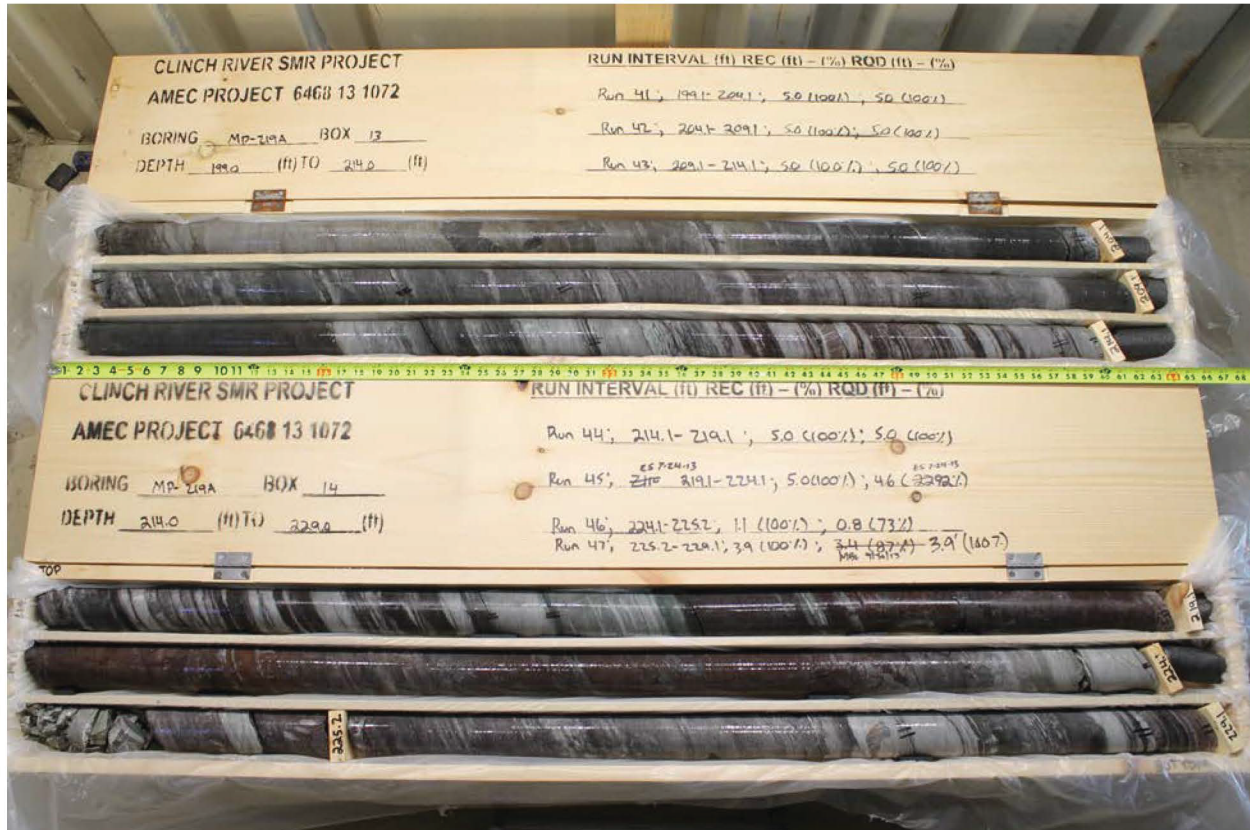 CLINCH RIVER SMR PROJECT
AMEC PROJECT 6468 13 1072
BORING MP-219A BOX 13
DEPTH 199.0 (ft) TO 214.0 (ft)
RUN INTERVAL (ft) REC (ft) – (%) RQD (ft) – (%)
Run 41; 199.1-204.1; 5.0 (100%); 5.0 (100%)
Run 42; 204.1-209.1; 5.0 (100%); 5.0 (100%)
Run 43; 209.1-214.1; 5.0 (100%); 5.0 (100%)
204.1
209.1
214.1
1 2 3 4 5 6 7 8 9 10 11 13 14 15 17 18 19 20 21 22 23 25 26 27 28 29 30 31 33 34 35 37 38 39 40 41 42 43 44 45 46 47 49 50 51 52 53 54 55 56 57 58 59 61 62 63 65 66 67 68
CLINCH RIVER SMR PROJECT
AMEC PROJECT 6468 13 1072
BORING MP-219A BOX 14
DEPTH 214.0 (ft) TO 229.0 (ft)
RUN INTERVAL (ft) REC (ft) – (%) RQD (ft) – (%)
Run 44; 214.1-219.1; 5.0 (100%); 5.0 (100%)
ES 7-24-13 ES 7-24-13
Run 45; 219.1-224.1; 5.0 (100%); 4.6 (92%)
Run 46; 224.1-225.2; 1.1 (100%); 0.8 (73%)
Run 47; 225.2-229.1; 3.9 (100%); 3.4 (87%) 3.9' (100%)
TOP
219.1
224.1
225.2
229.1